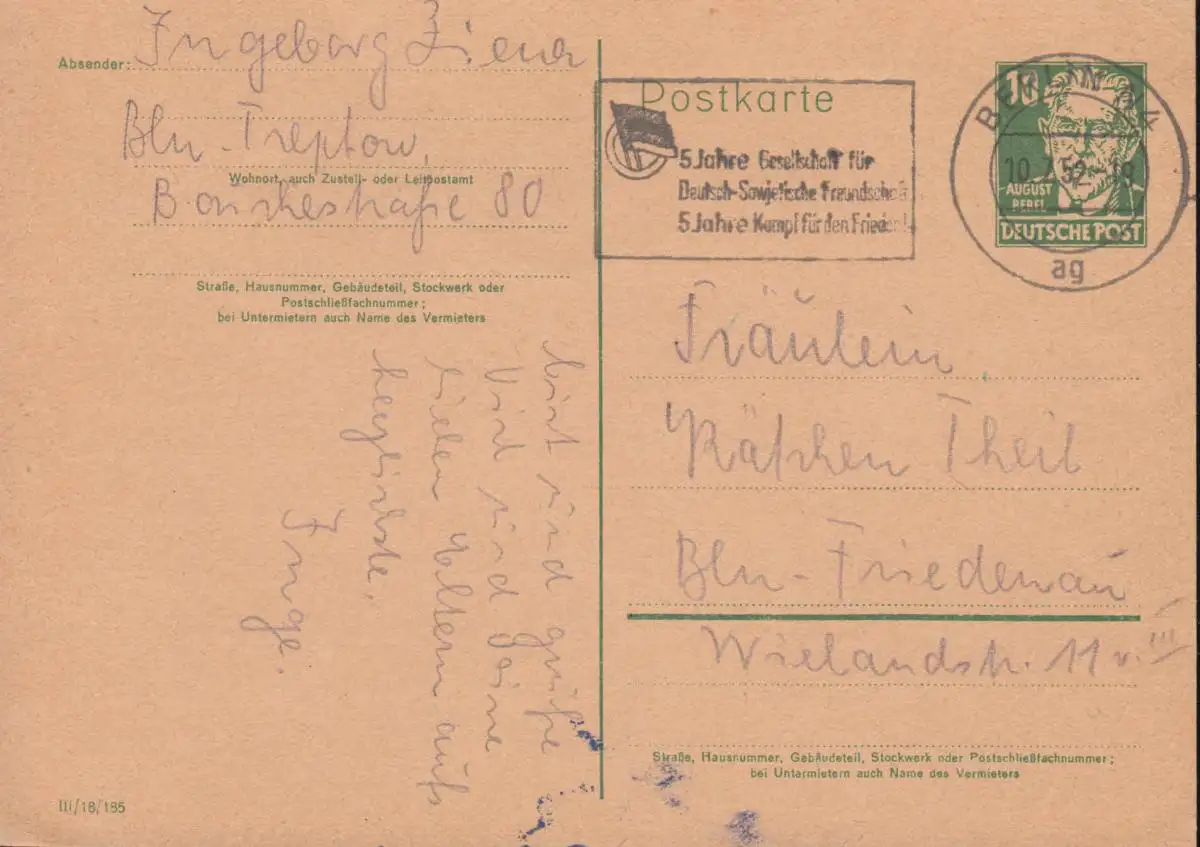 Absender: Ingeborg
Bln-Treptow,
Wohnort, auch Zustell- oder Leitpostamt
80
Straße, Hausnummer, Gebäudeteil, Stockwerk oder
Postschließfachnummer;
bei Untermietern auch Name des Vermieters
bist und grüße
Dich und Deine
lieben Eltern aufs
herzlichste,
Inge.
III/18/185
Postkarte
5 Jahre Gesellschaft für
Deutsch-Sowjetische Freundschaft
5 Jahre Kampf für den Frieden
BERLIN
10.7.52
ag
10
AUGUST
BEBEL
DEUTSCHE POST
Fräulein
Käthchen Theil
Bln-Friedenau
Wielandstr. 11 v. III
Straße, Hausnummer, Gebäudeteil, Stockwerk oder Postschließfachnummer;
bei Untermietern auch Name des Vermieters